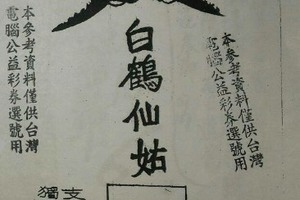 本參考資料僅供台灣
電腦公益彩券選號用
白鶴仙姑
本參考資料僅供台灣
電腦公益彩券選號用
獨支